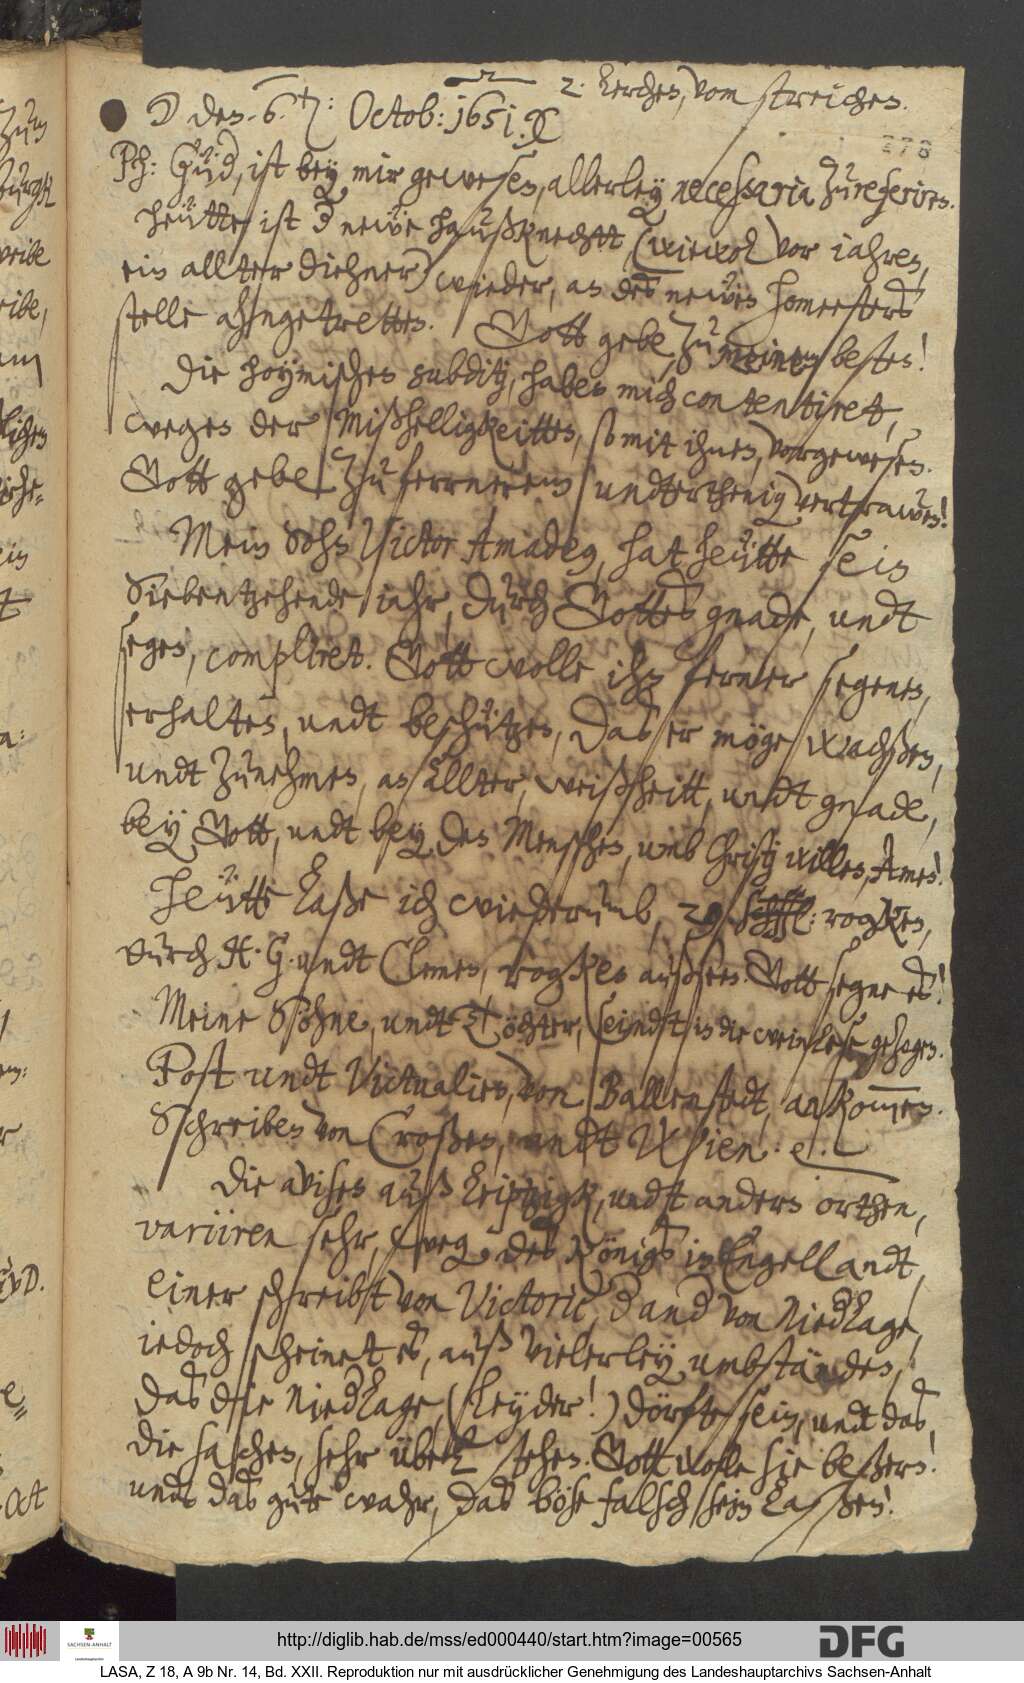 2. Lerchen, vom streichen.
☽ den 6.t: Octob: 1651.
278
Ph: Güd, ist bey mir gewesen, allerley necessaria zu referiren.
heütte ist der newe haußknechtt, (wiewol vor iahren,
ein allter diehner) wieder, an des newen hofmeisters
stelle ahngetretten. Gott gebe, zu meinem besten!
Die hoymischen subditj, haben mich contentiret,
wegen der Mißhelligkeitten, so mit ihnen, vorgewesen.
Gott gebe, zu fernerem undterthenig vertrawen!
Mein Sohn Victor Amadeus, hat heütte sein
Siebentzehende iahr, durch Gottes gnade, undt
segen, compliret. Gott wolle ihn ferner segenen,
erhalten, undt beschützen, daß er möge wachßen,
undt zunehmen, an Allter, weißheitt, undt gnade,
bey Gott, undt bey den Menschen, umb Christj willen, Amen!
Heütte laße ich wiederumb, 20 Schfl: rogken,
durch H. G. undt Clemen, rogken außseen. Gott segne es!
Meine Söhne, undt Töchter, seindt in die weinlese gezogen.
Post undt Victualien, von Ballenstedt, ankommen.
Schreiben von Croßen, undt Wien. et cetera
Die avisen auß Leiptzigk, undt andern orthen,
variiren sehr, wegen des Königs in Engellandt,
einer schreibt von Victorie, der ander von Niederlage,
iedoch scheinet es, auß vielerley umbständen,
das die Niederlage, (leyder!) dörfte sein, undt das,
die sachen, sehr übel stehen. Gott wolle sie beßern!
undt das gute wahr, das böse falsch sein laßen!
http://diglib.hab.de/mss/ed000440/start.htm?image=00565
SACHSEN-ANHALT
DFG
LASA, Z 18, A 9b Nr. 14, Bd. XXII. Reproduktion nur mit ausdrücklicher Genehmigung des Landeshauptarchivs Sachsen-Anhalt